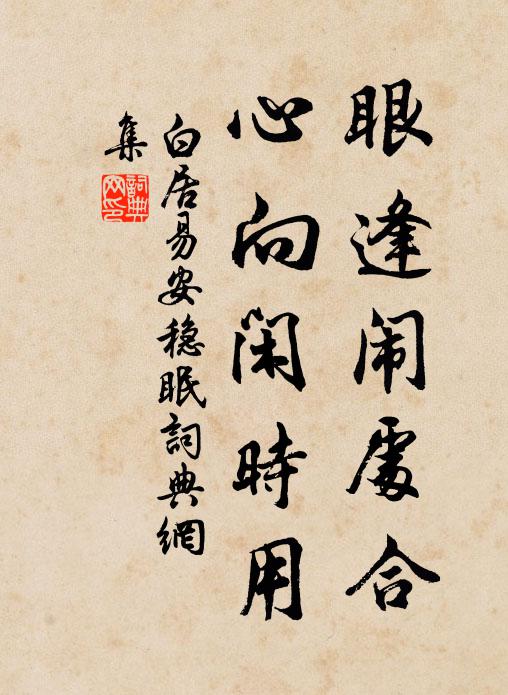 眼逢闹處合
心向闲時用
白居易安稳眠詞典網
集
詞典
网印